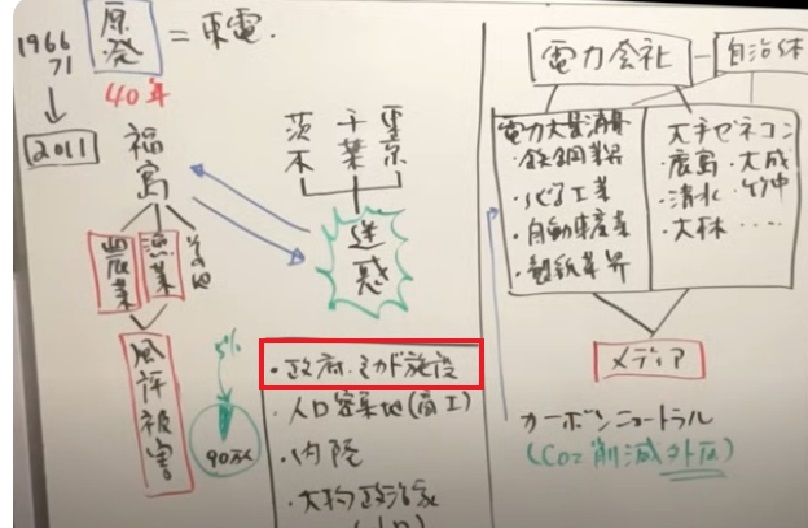 1966
71
2011
原発 = 東電.
40年
福島
農業
漁業
その他
風評被害
茨木
千葉
東京
迷惑
5%
90万人
・政府、ミカド施設
・人口密集地(商工)
・内陸
・大物政治家
電力会社
自治体
電力大量消費
・鉄鋼業界
・化学工業
・自動車産業
・製紙業界
大手ゼネコン
・鹿島・大成
・清水・竹中
・大林・・・・
メディア
カーボンニュートラル
(CO2削減外圧)